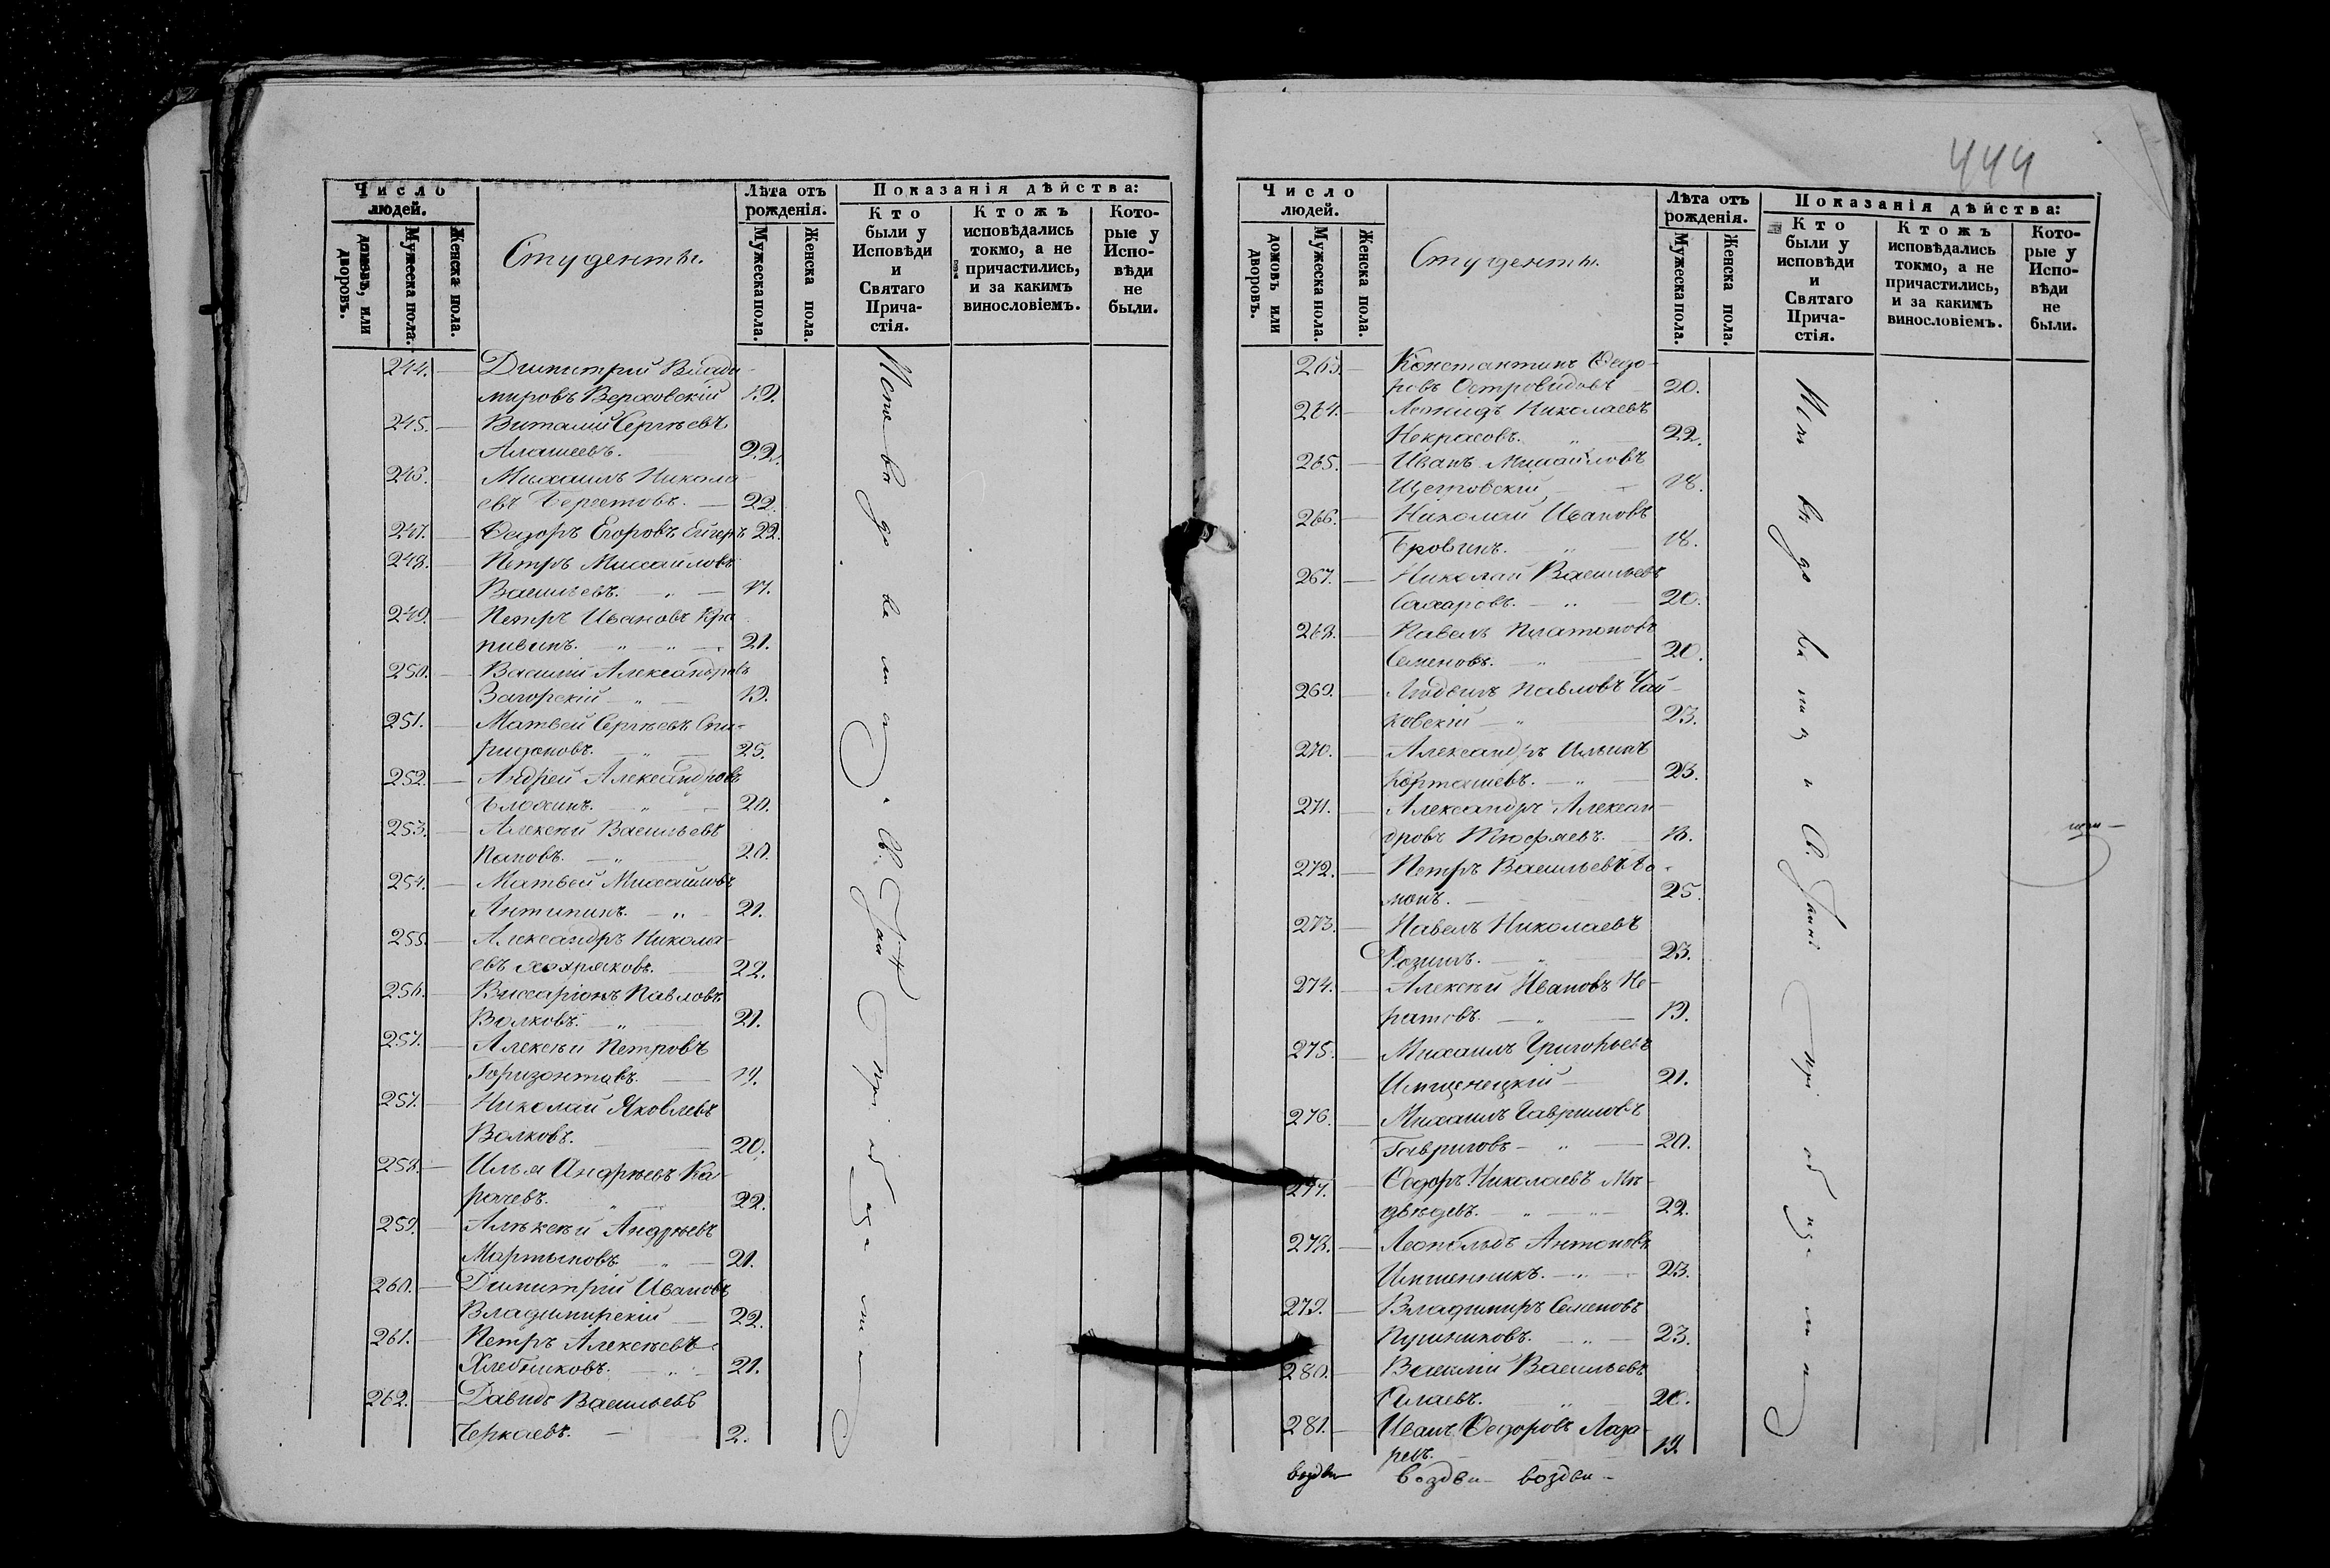 444
Число людей.
домовъ, или дворовъ.
Мужеска пола.
Женска пола.
Студенты.
Лѣта отъ рожденія.
Мужеска пола.
Женска пола.
Показанія дѣйства:
Кто были у Исповѣди и Святаго Прича-стія.
Ктожъ исповѣдались токмо, а не причастились, и за какимъ винословіемъ.
Кото-рые у Испо-вѣди не были.
244. — Димитрій Влади-
мировъ Верховскій 19.
245. — Виталій Сергѣевъ
Алашеевъ. 22.
246. — Михаилъ Никола-
евъ — 22.
247. — Ѳедоръ Егоровъ 22.
248. — Петръ Михайловъ
Васильевъ. — „ —
249. — Петръ Ивановъ Кра-
пивинъ. „ — „ 21.
250. — Василій Александровъ
Загорскій — „ — 19.
251. — Матвей Сергѣевъ Спи-
ридоновъ. — „ — 25.
252. — Андрей Александровъ
Блохинъ. — „ 20.
253. — Алексѣй Васильевъ
Поповъ. — „ 20.
254. — Матвей Михайловъ
Антипинъ. — „ — 21.
255. — Александръ Никола-
евъ Хохряковъ. 22.
256. — Виссаріонъ Павловъ
Волковъ. — „ 21.
257. — Алексѣй Петровъ
Горизонтовъ. — 19.
257. — Николай Яковлевъ
Волковъ. 20.
258. — Илья Андреевъ Ка-
рачевъ. „ 22.
259. — Алексѣй Андреевъ
Мартыновъ — „ — 21.
260. — Димитрій Ивановъ
Владимирскій — 22.
261. — Петръ Алексѣевъ
Хлебниковъ. — „ — 21.
262. — Давидъ Васильевъ
Черкаевъ. — 2.
Число людей.
домовъ или дворовъ.
Мужеска пола.
Женска пола.
Студенты.
Лѣта отъ рожденія.
Мужеска пола.
Женска пола.
Показанія дѣйства:
Кто были у исповѣди и Святаго Прича-стія.
Ктожъ исповѣдались токмо, а не причастились, и за какимъ винословіемъ.
Кото-рые у Испо-вѣди не были.
263. — Константинъ Ѳедо-
ровъ Островидовъ 20.
264. — Леонидъ Николаевъ
Некрасовъ. „ 22.
265. — Иванъ Михайловъ
Щегловскій — 18.
266. — Николай Ивановъ
Бровинъ. — „ — 18.
267. — Николай Васильевъ
Сахаровъ. — „ — 20.
268. — Павелъ Платоновъ
Семеновъ. — „ 20.
269. — Павловъ Чай-
ковскій — „ 23.
270. — Александръ Ильинъ
— „ — 23.
271. — Александръ Алексан-
дровъ Тюфяевъ. — 18.
272. — Петръ Васильевъ
25.
273. — Павелъ Николаевъ
Розинъ. — „ 23.
274. — Алексѣй Ивановъ Не-
ратовъ. — „ — 19.
275. — Михаилъ Григорьевъ
21.
276. — Михаилъ Гавриловъ
Гавриловъ — „ — 20.
277. — Ѳедоръ Николаевъ Мѣ-
двѣдевъ. „ — „ 22.
278. — Леопольдъ Антоновъ
— „ — 23.
279. — Владимиръ Семеновъ
— „ — 23.
280. — Василій Васильевъ
„ 20.
281. — Иванъ Ѳедоровъ Лаза-
ревъ. 19.
воздви — воздви — воздви —